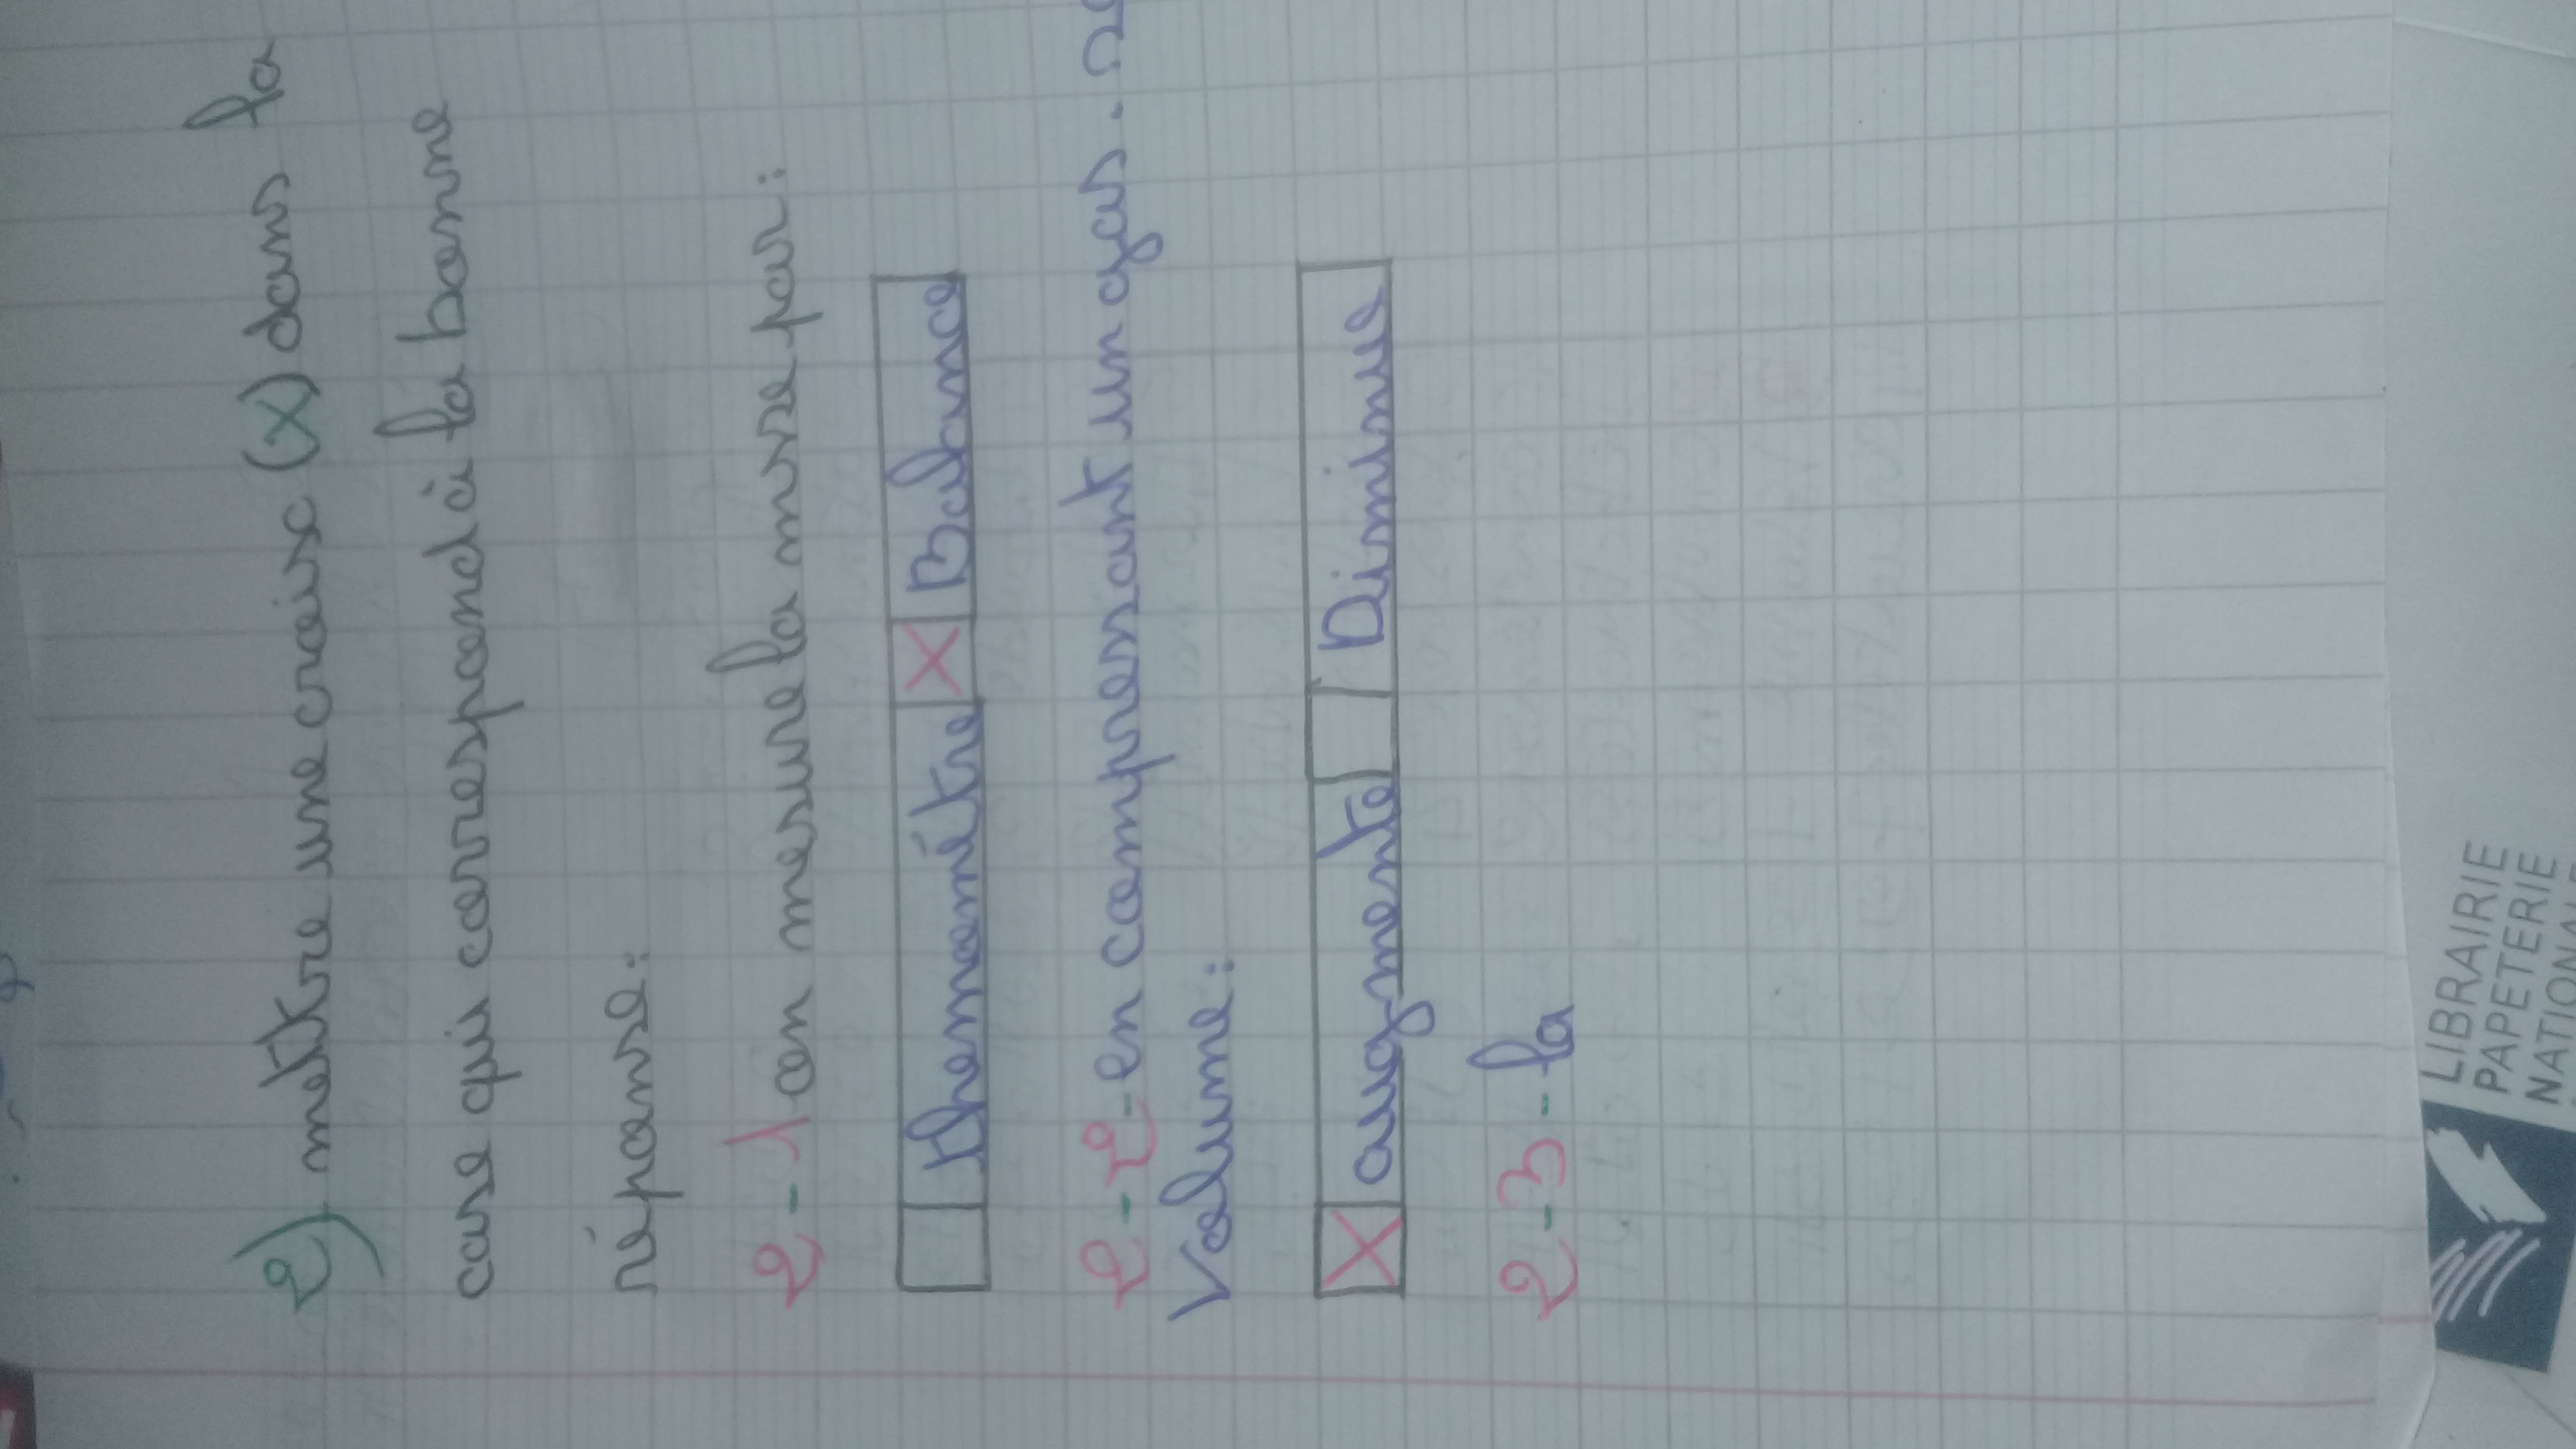 2) mettre une croix (x) dans la
case qui correspond à la bonne
réponse:
2-1 on mesure la msse par:
thermomètre X Balance
2-2-en compressant un gas. so
Volume:
X augmente Diminue
2-3-la
LIBRAIRIE
PAPETERIE